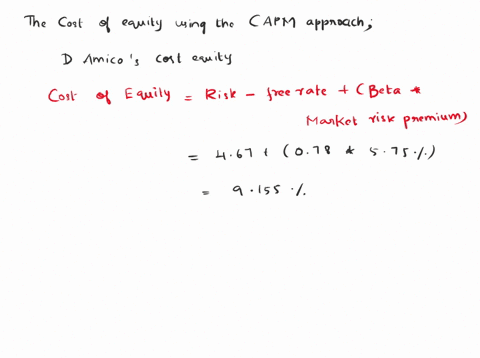 The Cost of equity using the CAPM approach;
D Amico's cost equity
Cost of Equity = Risk - free rate + (Beta *
Market risk premium)
= 4.67 + (0.78 * 5.75%)
= 9.155%